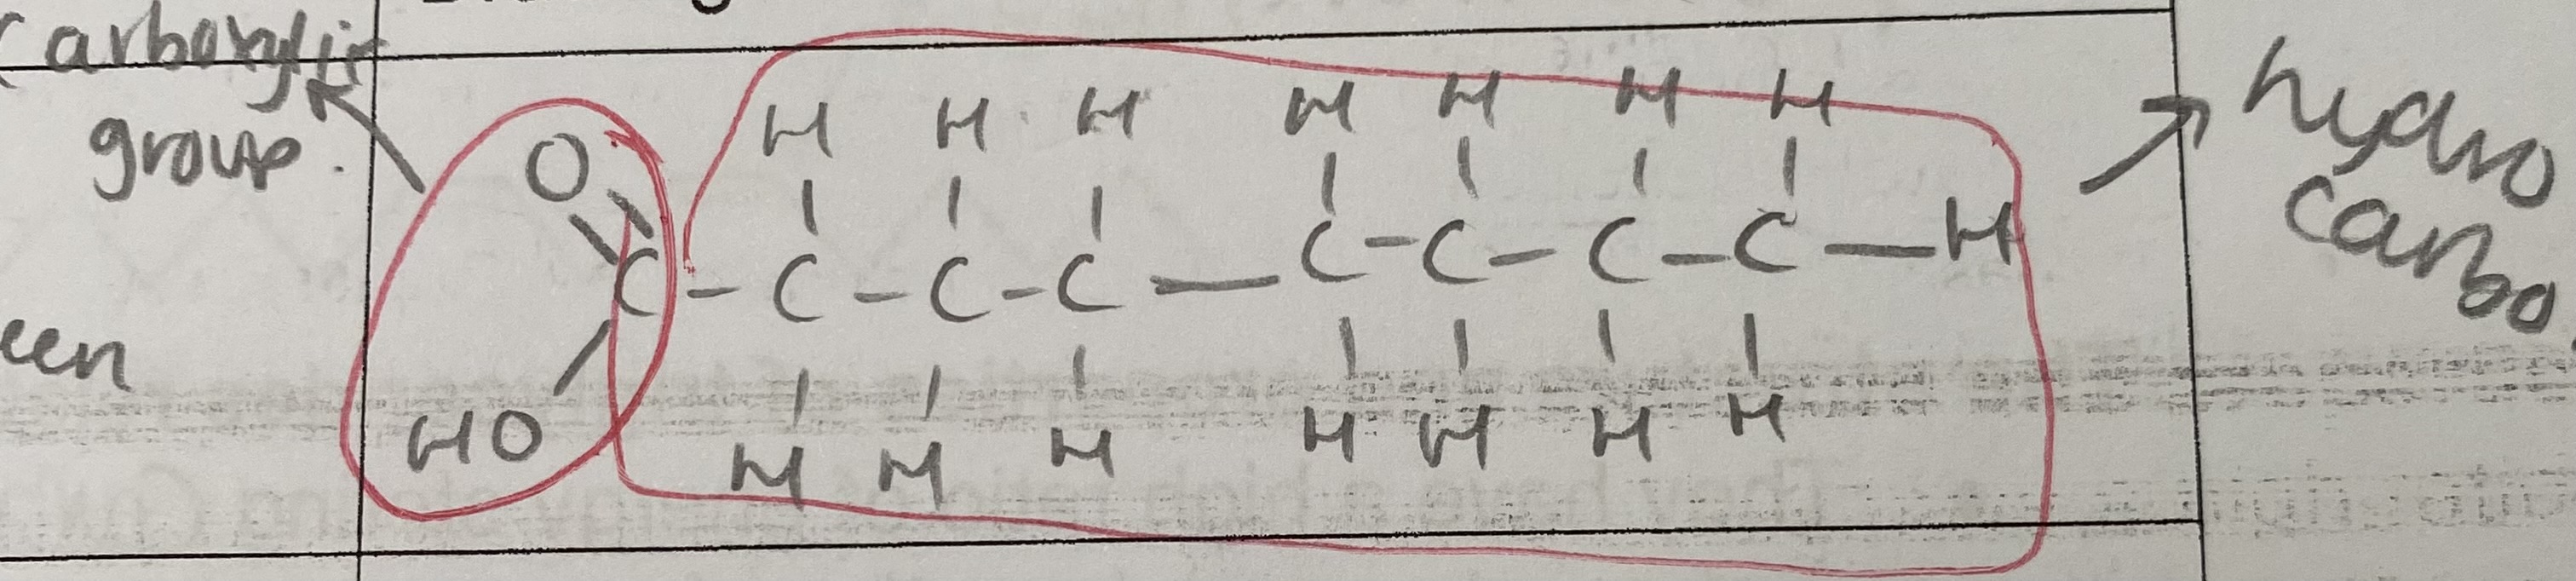 Carboxylic
group.
H H H H H H H
O
C-C-C-C-C-C-C-C-H
HO
H H H H H H H
een
hydro
carbo